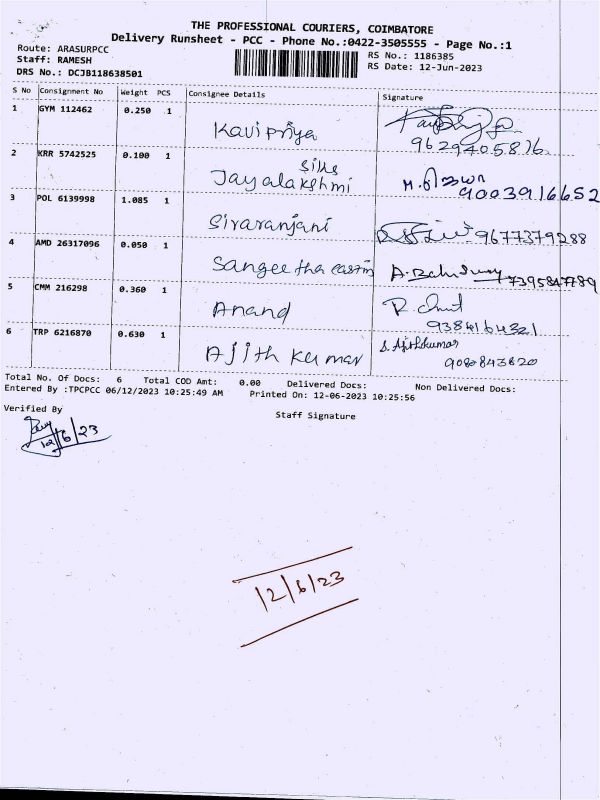 THE PROFESSIONAL COURIERS, COIMBATORE
Delivery Runsheet - PCC - Phone No.:0422-3505555 - Page No.:1
Route: ARASURPCC
Staff: RAMESH
DRS No.: DCJB118638501
RS No.: 1186385
RS Date: 12-Jun-2023
S No Consignment No Weight PCS Consignee Details Signature
1 GYM 112462 0.250 1 Kavipriya
9629405816
2 KRR 5742525 0.100 1 Jayalakshmi Silks
9003916652
3 POL 6139998 1.085 1 Sivaranjani 9677379288
4 AMD 26317096 0.050 1 Sangeetha 7395847789
5 CMM 216298 0.360 1 Anand
9384164321
6 TRP 6216870 0.630 1 Ajith Kumar S. Ajithkumar
9080843820
Total No. Of Docs: 6 Total COD Amt: 0.00 Delivered Docs: Non Delivered Docs:
Entered By :TPCPCC 06/12/2023 10:25:49 AM Printed On: 12-06-2023 10:25:56
Verified By
Staff Signature
12/6/23
12/6/23